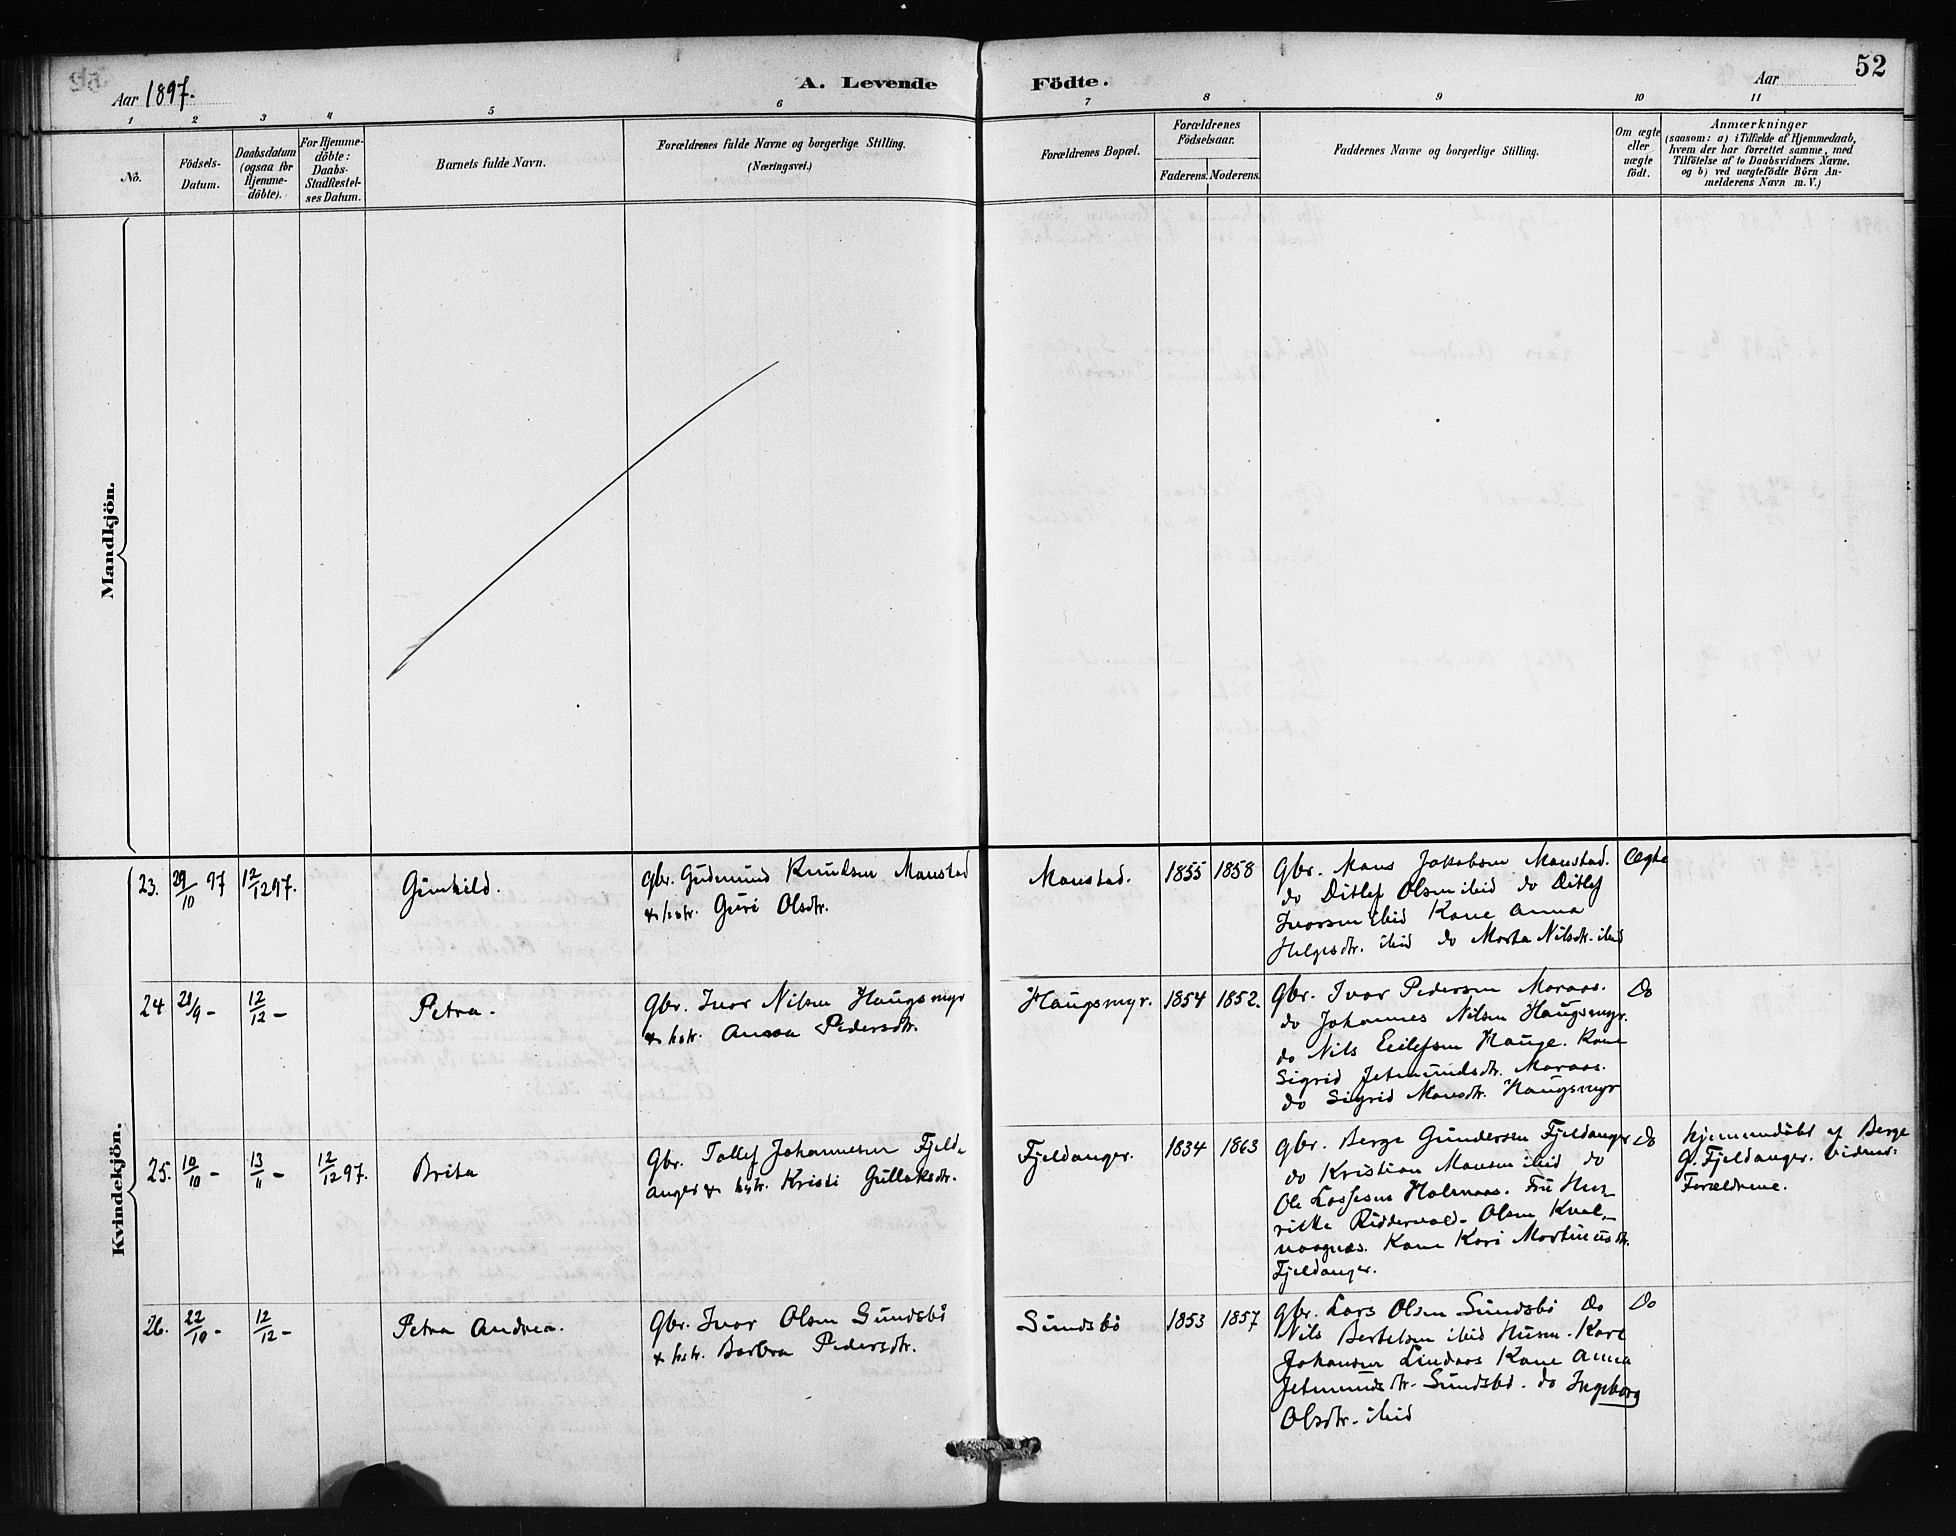 52
Aar 1897.
A. Levende Födte.
Aar
1 2 3 4 5 6 7 8 9 10 11
No.
Födsels-
Datum.
Daabsdatum
(ogsaa for
Hjemme-
döbte).
For Hjemme-
döbte:
Daabs-
Stadfæstel-
ses Datum.
Barnets fulde Navn.
Forældrenes fulde Navne og borgerlige Stilling.
(Næringsvei.)
Forældrenes Bopæl.
Forældrenes
Födselsaar.
Faderens. Moderens.
Faddernes Navne og borgerlige Stilling.
Om ægte
eller
uægte
födt.
Anmærkninger
(saasom: a) i Tilfælde af Hjemmedaab,
hvem der har forrettet samme, med
Tilföielse af to Daabsvidners Navne.
og b) ved uægtefödte Börn An-
melderens Navn m. V.)
Mandkjön.
Kvindekjön.
23.
29/10 97
12/12 97.
Gunhild.
Gbr. Gudmund Knudsen Monstad
& hstr. Guri Olsdtr.
Monstad.
1855
1858
Gbr. Mons Jakobsen Monstad.
do Ditlef Olsen ibid do Ditlef
Ivorsen ibid Kone Anna
Helgesdtr. ibid do Marta Nilsdtr. ibid
Ægte
24
28/9 -
12/12 -
Petra.
Gbr. Ivar Nilsen Haugsmyr
& hstr. Anna Pedersdtr.
Haugsmyr.
1854
1852.
Gbr. Ivar Pedersen Moraas.
do Johannes Nilsen Haugsmyr.
do Nils Eilefsen Hauge. Kone
Sigrid Jetmundsdtr. Moraas.
do Sigrid Monsdtr. Haugsmyr
Do
25.
10/10 -
13/11 -
12/12 97.
Brita
Gbr. Tollef Johannesen Fjeld-
anger & hstr. Kristi Gullaksdtr.
Fjeldanger.
1834
1863
Gbr. Berge Gundersen Fjeldanger
do Kristian Monsen ibid do
Ole Lassesen Holmaas. Fru Hen-
rikke Riddervold-Olsen Kval-
vaagnæs. Kone Kari Martinusdtr.
Fjeldanger.
Do
Hjemmedöbt af Berge
G. Fjeldanger. Vidner:
Forældrene.
26.
22/10 -
12/12 -
Petra Andrea.
Gbr. Ivar Olsen Sundsbö
& hstr. Barbra Pedersdtr.
Sundsbö
1853
1857
Gbr. Lars Olsen Sundsbö Do
Nils Bertelsen ibid Husm. Karl
Johansen Lindaas Kone Anna
Jetmundsdtr. Sundsbö. do Ingeborg
Olsdtr. ibid
Do